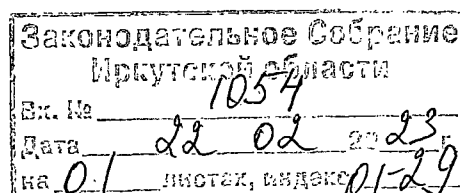 Законодательное Собрание
Иркутской области
Вх. № 1054
Дата 22 02 2023 г.
на 01 листах, индекс 01-29